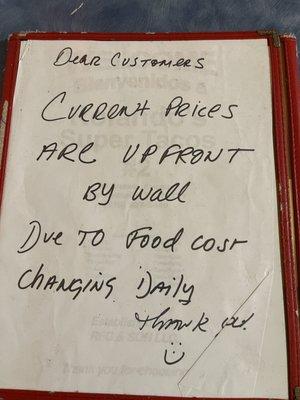 Dear Customers
Current Prices
are upfront
by wall
Due to Food cost
changing Daily
Thank you!
Bienvenidos a
Super Tacos